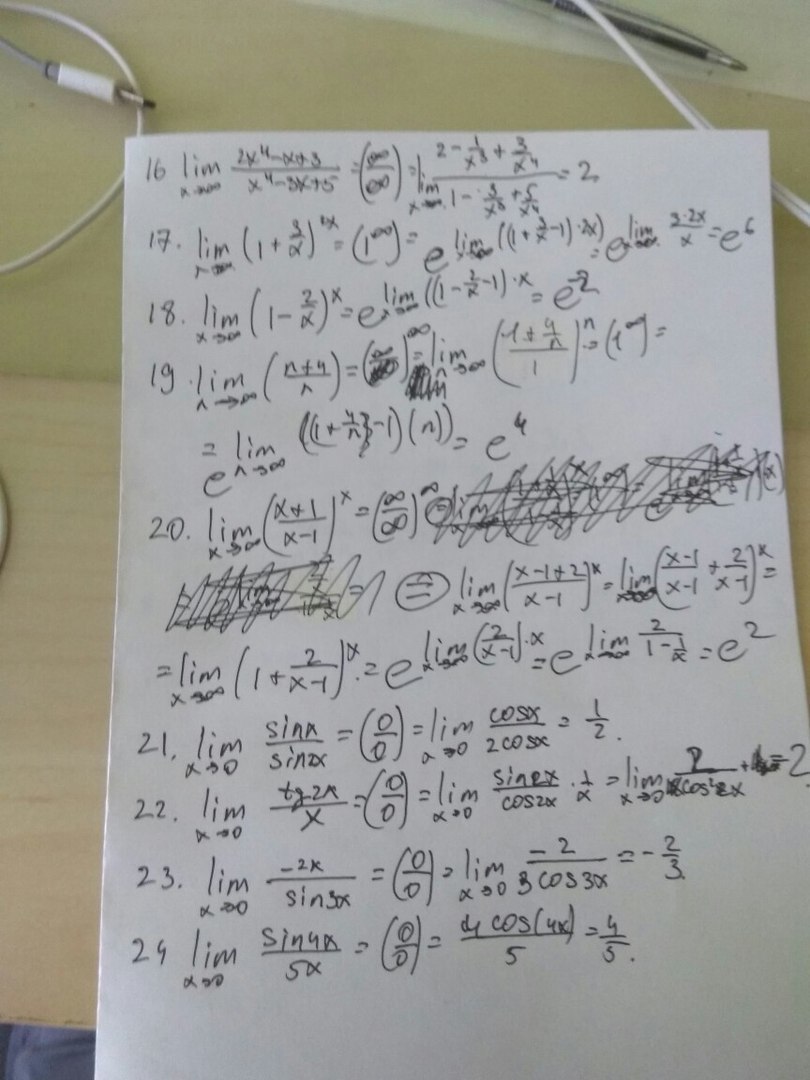 16 lim x→∞ (2x⁴-x+3)/(x⁴-3x+5) = (∞/∞) = lim x→∞ (2 - 1/x³ + 3/x⁴)/(1 - 3/x³ + 5/x⁴) = 2
17. lim x→∞ (1 + 3/x)^2x = (1^∞) = e^lim x→∞ ((1 + 3/x - 1)·2x) = e^lim x→∞ 3·2x/x = e⁶
18. lim x→∞ (1 - 2/x)^x = e^lim x→∞ ((1 - 2/x - 1)·x = e⁻²
19. lim n→∞ (n+4/n) = (∞/∞)^∞ = lim n→∞ ((1 + 4/n)/1)^n = (1^∞) =
= e^lim n→∞ ((1 + 4/n) - 1)(n)) = e⁴
20. lim x→∞ (x+1/x-1)^x = (∞/∞)^∞ =
= lim x→∞ (x-1+2/x-1)^x = lim x→∞ (x-1/x-1 + 2/x-1)^x =
= lim x→∞ (1 + 2/x-1)^x = e^lim x→∞ (2/x-1)·x = e^lim x→∞ 2/(1 - 1/x) = e²
21. lim x→0 sinx/sin2x = (0/0) = lim x→0 cosx/2cosx = 1/2.
22. lim x→0 tg2x/x = (0/0) = lim x→0 sin2x/cos2x · 1/x = lim x→0 2/cos²2x = 2
23. lim x→0 -2x/sin3x = (0/0) = lim x→0 -2/3cos3x = -2/3.
24 lim x→0 sin4x/5x = (0/0) = 4cos(4x)/5 = 4/5.